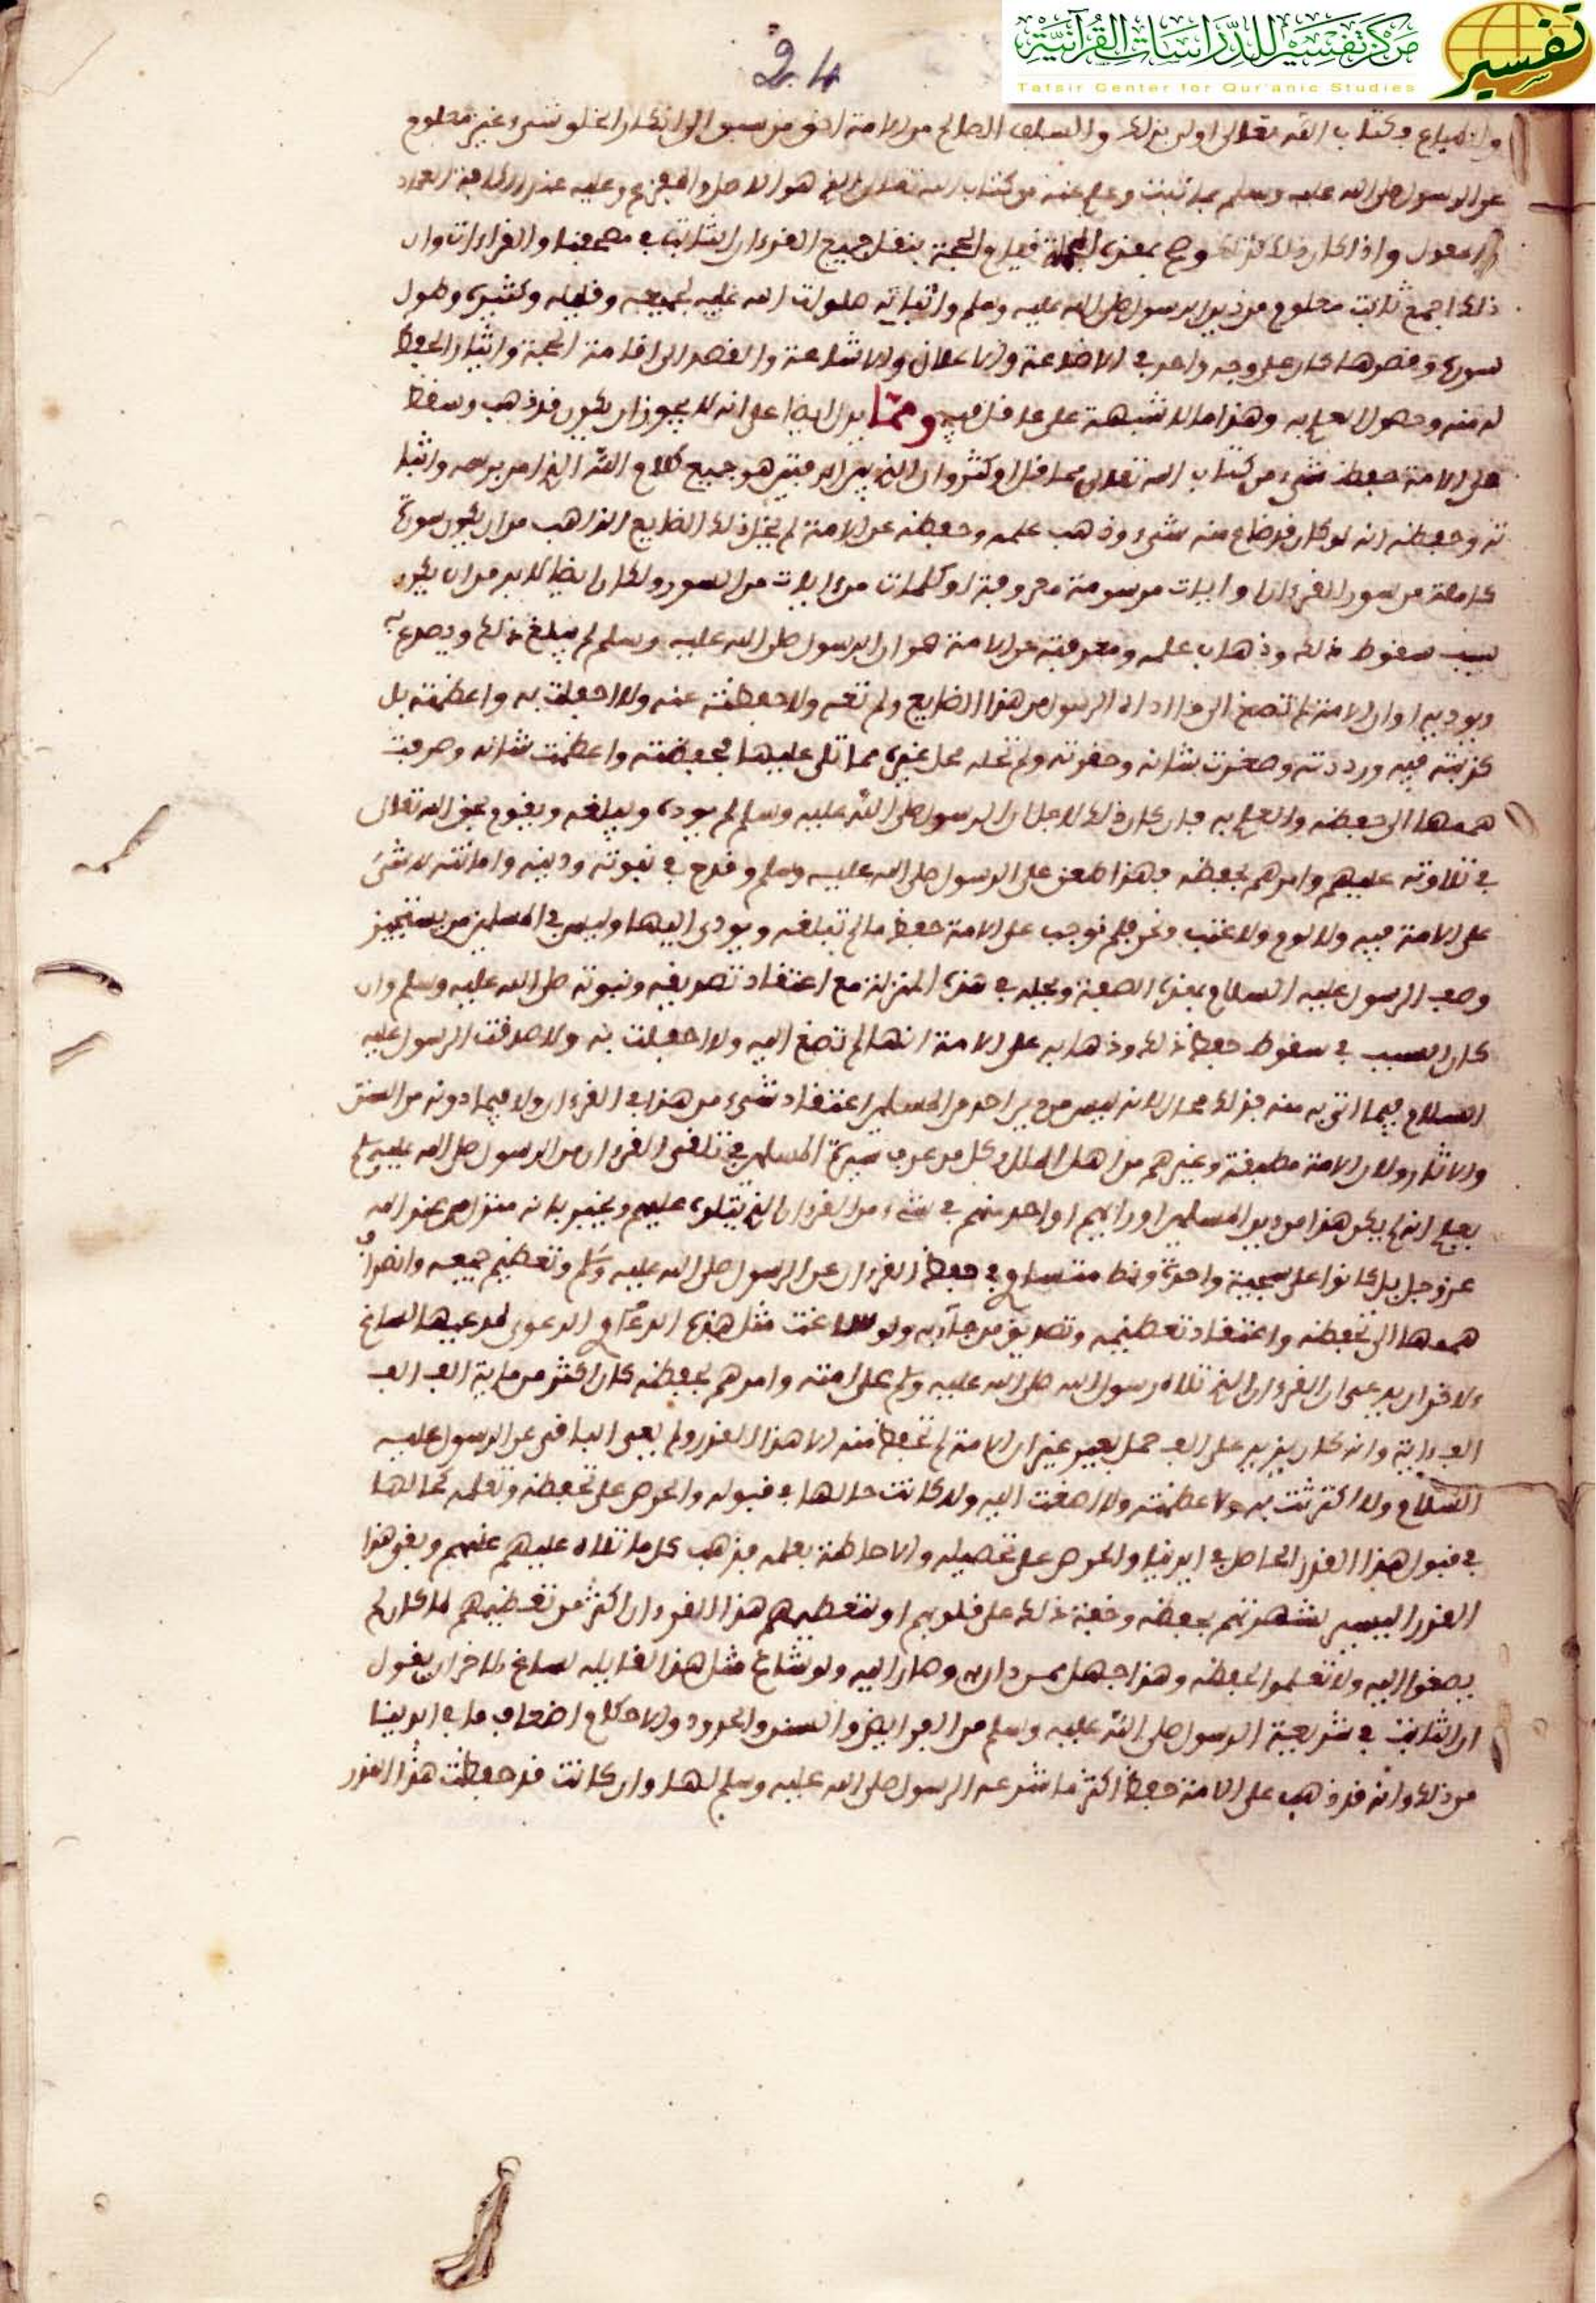 مركز تفسير للدراسات القرآنية
Tafsir Center for Qur'anic Studies
تفسير
24
كتاب الله تعالى اولى بذلك والسلف الصالح من الامة شيء غير معلوم
عن الرسول صلى الله عليه وسلم من كتاب الله تعالى الذي هو الاصل
واذا كان ذلك كذلك وصح بهذه الجملة قيام الحجة بنقل جميع القرءان الثابت في مصحفنا والقراءات وان
ذلك اجمع ثابت معلوم من دين الرسول صلى الله عليه وسلم واثباته صلوات الله عليه لجميعه وقليله وكثيره وطول
سوره وقصرها كان على وجه واحد في الاذاعة والاعلان والاشاعة والقصد الى اقامة الحجة وايثار الحفظ
له منه وحصول العلم به وهذا ما لا شبهة على عاقل فيه ومما يدل ايضا على انه لا يجوز ان يكون قد ذهب وسقط
على الامة حفظ شيء من كتاب الله تعالى مما قل او كثر وان الذي بين الدفتين هو جميع كلام الله الذي امر برسمه واثبا
ته وحفظه انه لو كان قد ضاع منه شيء وذهب علمه وحفظه عن الامة لم يخل ذلك الضايع الذاهب من ان يكون سورة
كاملة من سور القرءان او ايات مرسومة معروفة او كلمات من ايات من السور ولكان ايضا لا بد من ان يكون
سبب سقوط ذلك وذهاب علمه ومعرفته عن الامة هو ان الرسول صلى الله عليه وسلم لم يبلغ ذلك ويصدع به
ويوديه او ان الامة لم تصغ الى ما اداه الرسول من هذا الضايع ولم تعه ولا حفظته عنه ولا احفلت به واعظمته بل
كذبته فيه ورددته وصغرت شانه وحقرته ولم تحله محل غيره مما تلى عليها فحفظته واعظمت شانه وصرفت
هممها الى حفظه والعلم به فان كان ذلك لاجل ان الرسول صلى الله عليه وسلم لم يوده ويبلغه ويقوم بحق الله تعالى
في تلاوته عليهم وامرهم بحفظه فهذا طعن على الرسول صلى الله عليه وسلم وقدح في نبوته ودينه وامانته لا شيء
على الامة فيه ولا لوم ولا عتب ونحن فلم نوجب على الامة حفظ ما لم تبلغه ويودى اليها وليس في المسلمين من يستجيز
وصف الرسول عليه السلام بهذه الصفة ويحله في هذه المنزلة مع اعتقاد تصديقه ونبوته صلى الله عليه وسلم وان
كان السبب في سقوط حفظ ذلك وذهابه على الامة انها لم تصغ اليه ولا احفلت به ولا صدقت الرسول عليه
السلام فيما اتى به منه فذلك محال لانه ليس من دين احد من المسلمين اعتقاد شيء من هذا في القرءان ولا فيما دونه من السنن
والاثار ولان الامة مطبقة وغيرهم من اهل الملل وكل من عرف سيرة المسلمين في تلقي القرءان من الرسول صلى الله عليه وسلم
يعلم انه لم يكن هذا من دين المسلمين او رايهم او احد منهم في شيء من القرءان الذي يتلوه عليهم ويخبر بانه منزل من عند الله
عز وجل بل كانوا على سجية واحدة ونمط متساو في حفظ القرءان عن الرسول صلى الله عليه وسلم وتعظيم جميعه وانصراف
هممها الى تحفظه واعتقاد تعظيمه وتصديق من جا به ولو ساغت مثل هذه الدعوى لمدعيها لساغ
لاخر ان يدعي ان القرءان الذي تلاه رسول الله صلى الله عليه وسلم على امته وامرهم بحفظه كان اكثر من ماية الف الف
الف اية وانه كان يزيد على الف حمل بعير غير ان الامة لم تحفظ منه الا هذا القدر ولم يعى الباقي عن الرسول عليه
السلام ولا اكترثت به ولا عظمته ولا اصغت اليه ولا كانت حالها في قبوله والحرص على تحفظه وتعلمه كحالها
في قبول هذا القدر الحاصل في ايدينا والحرص على تحصيله والاحاطة بعلمه فذهب كل ما تلاه عليهم عنهم وبقى هذا
القدر اليسير لشهرتهم بحفظه وخفة ذلك على قلوبهم او لتعظيمهم هذا القرءان اكثر من تعظيمهم لما كان لم
يصغوا اليه ولا تعلموا لحفظه وهذا جهل ممن دان به وصار اليه ولو شاع مثل هذا لقايله لساغ لاخر ان يقول
ان الثابت في شريعة الرسول صلى الله عليه وسلم من الفرايض والسنن والحدود والاحكام اضعاف ما في ايدينا
من ذلك وانه قد ذهب على الامة حفظ اكثر ما شرعه الرسول صلى الله عليه وسلم لها وان كانت قد حفظت هذا القدر